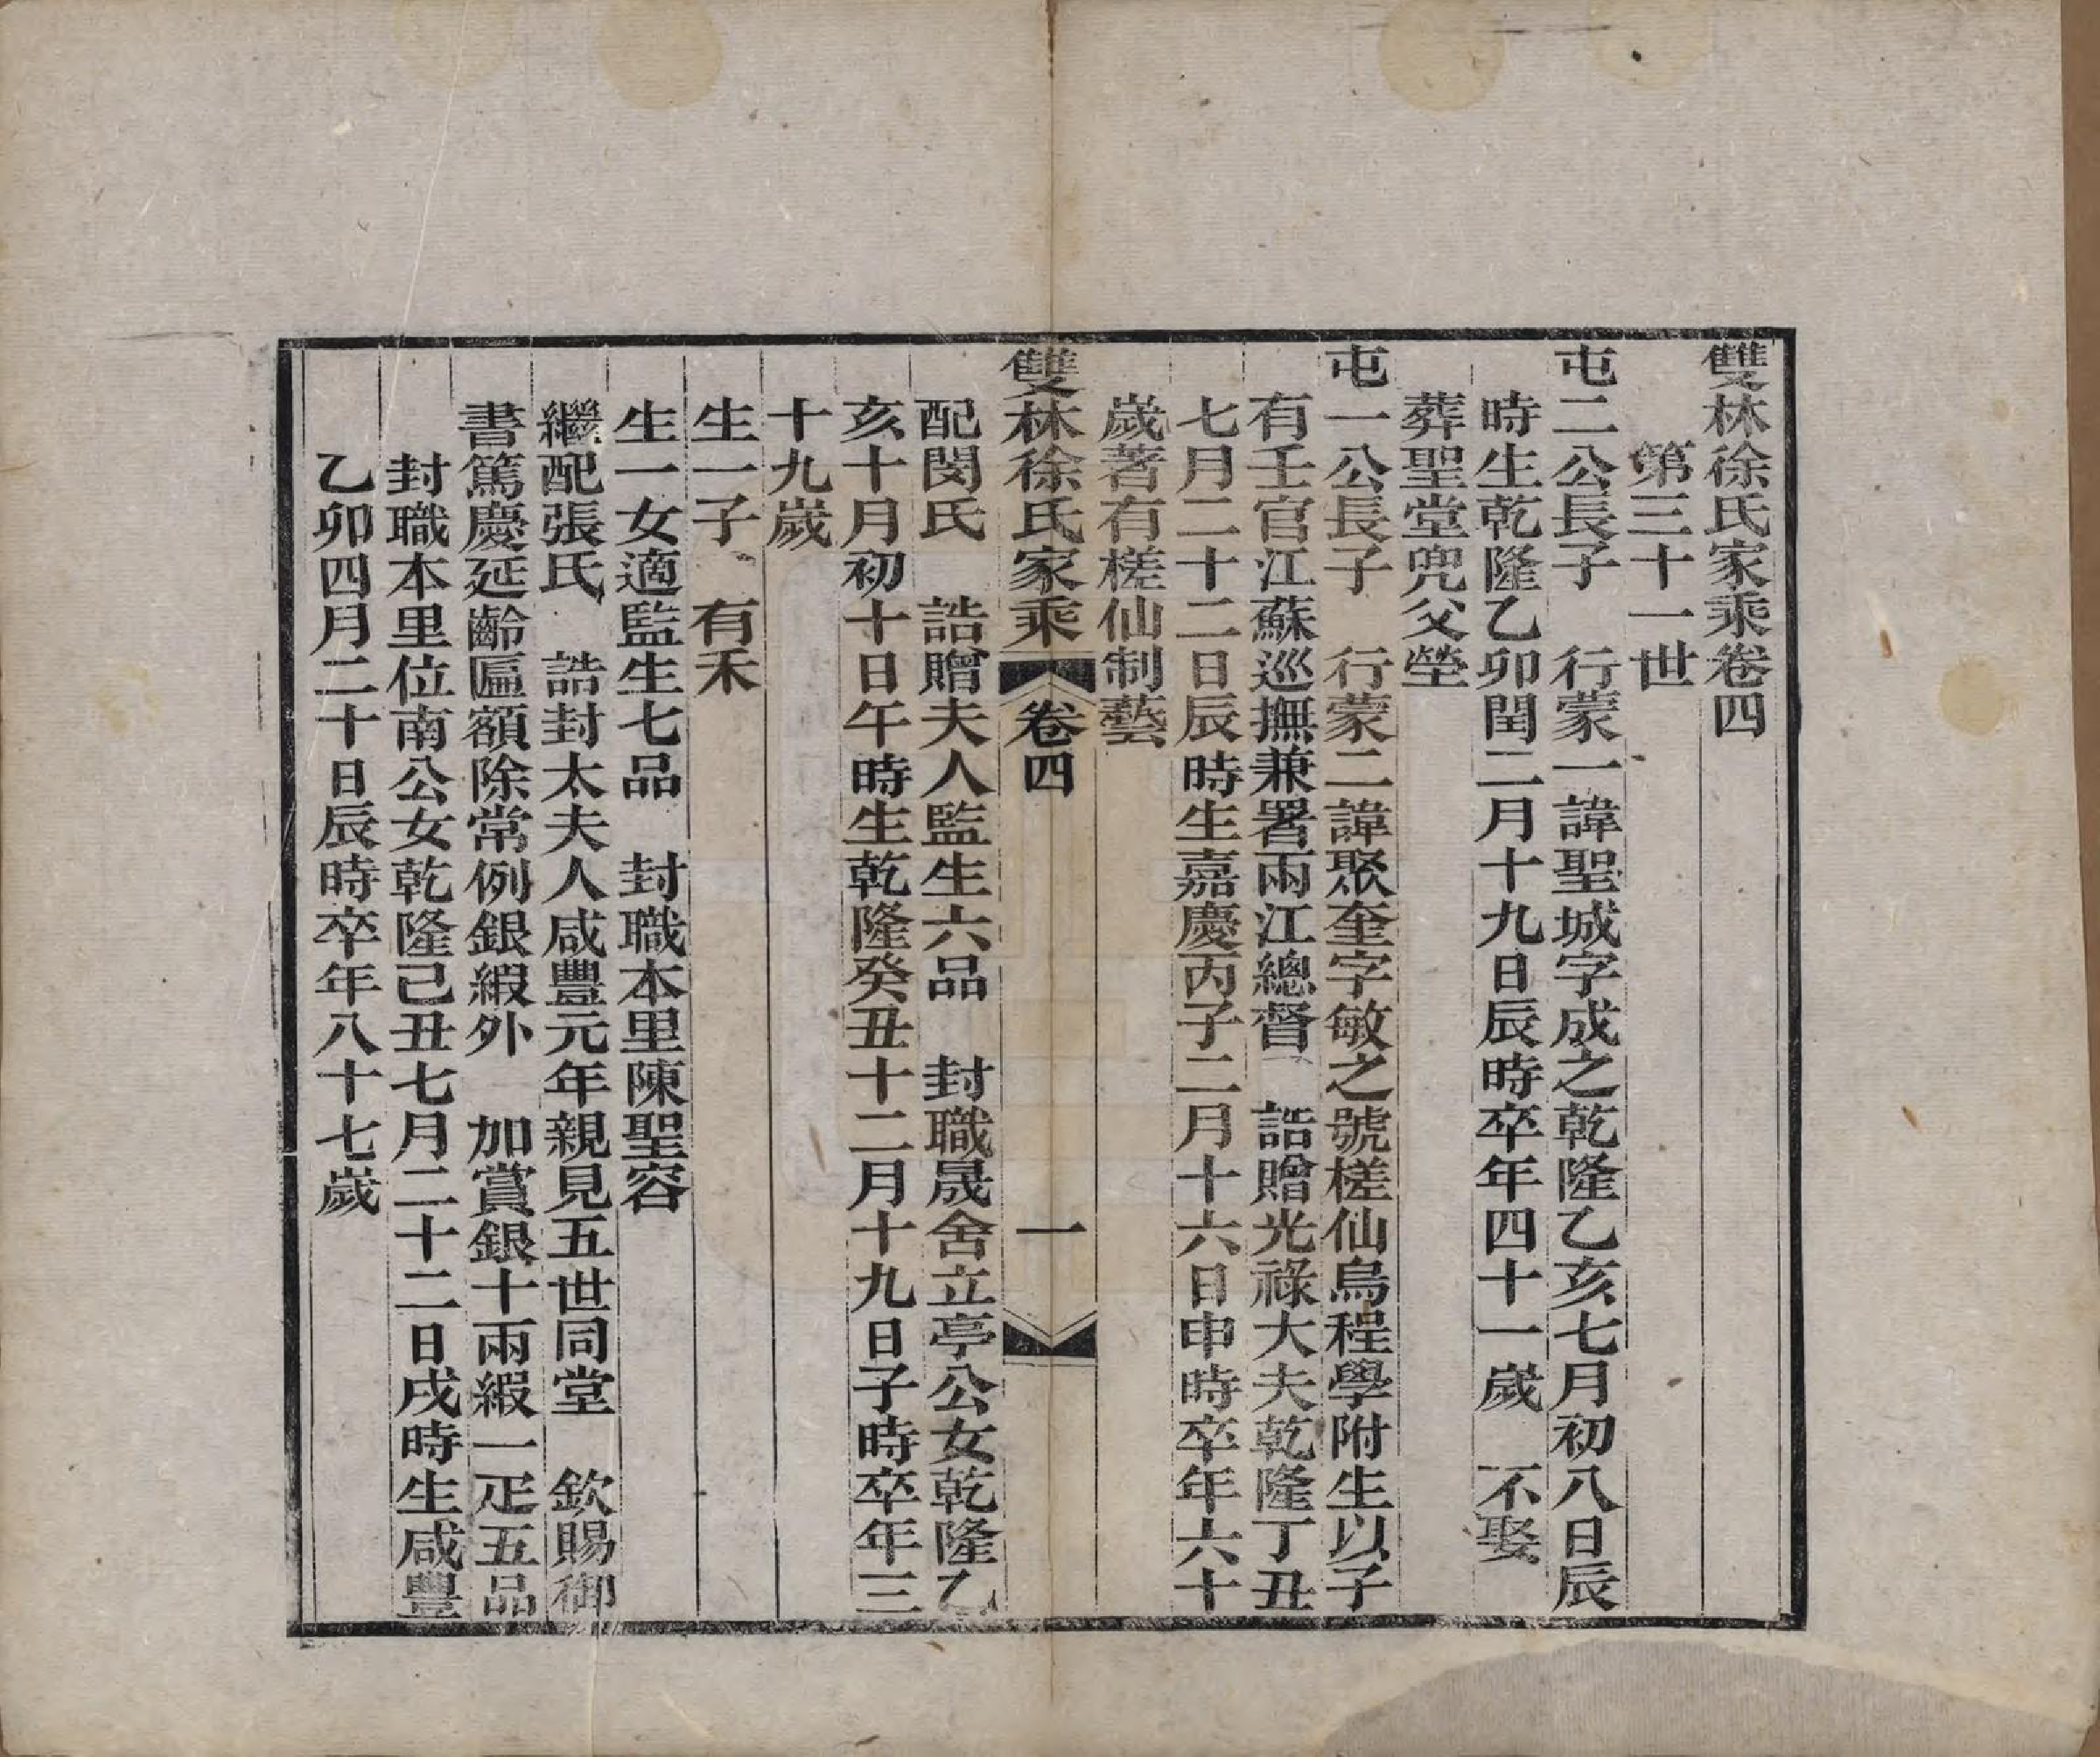 雙林徐氏家乘卷四
第三十一世
屯二公長子　行蒙一諱聖城字成之乾隆乙亥七月初八日辰
時生乾隆乙卯閏二月十九日辰時卒年四十一歲　不娶
葬聖堂兜父塋
屯一公長子　行蒙二諱聚奎字敏之號槎仙烏程學附生以子
有壬官江蘇巡撫兼署兩江總督　誥贈光祿大夫乾隆丁丑
七月二十二日辰時生嘉慶丙子二月十六日申時卒年六十
歲著有槎仙制藝
雙林徐氏家乘　卷四　一
配閔氏　誥贈夫人監生六品　封職晟舍立亭公女乾隆乙
亥十月初十日午時生乾隆癸丑十二月十九日子時卒年三
十九歲
生一子　有禾
生一女適監生七品　封職本里陳聖容
繼配張氏　誥封太夫人咸豐元年親見五世同堂　欽賜御
書篤慶延齡匾額除常例銀緞外　加賞銀十兩緞一疋五品
封職本里位南公女乾隆己丑七月二十二日戌時生咸豐
乙卯四月二十日辰時卒年八十七歲